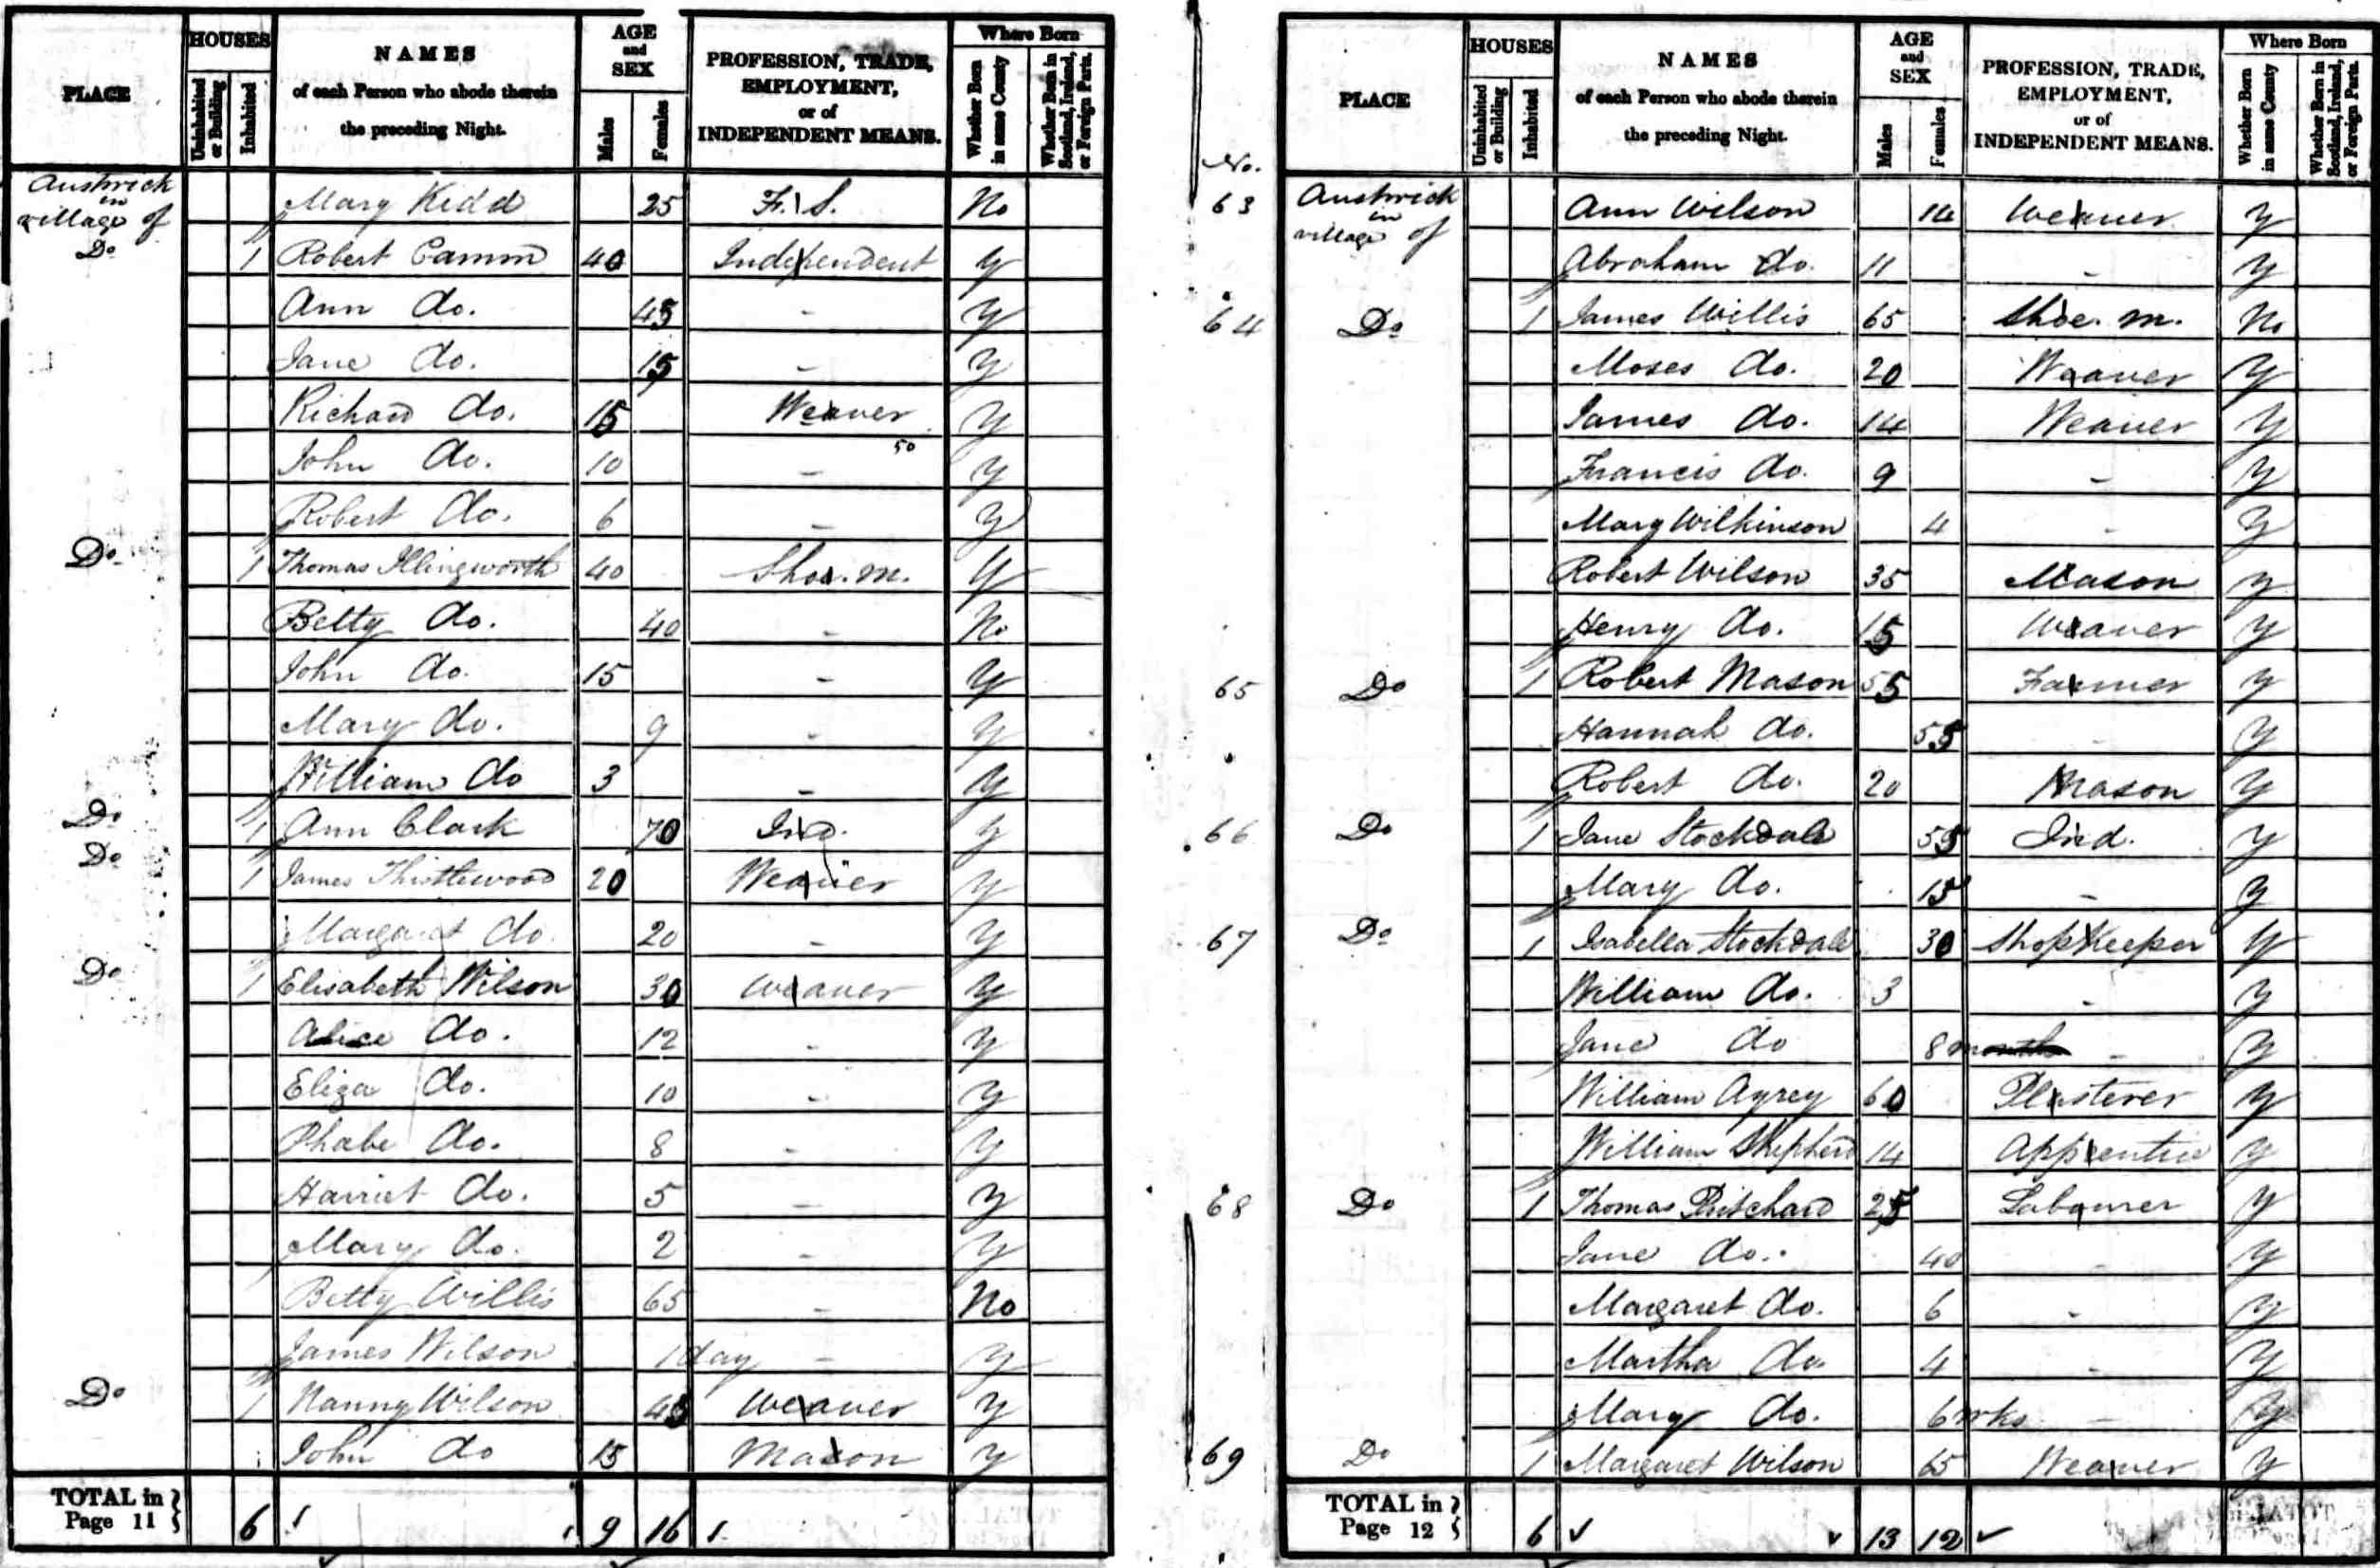 PLACE HOUSES Uninhabited or Building Inhabited NAMES of each Person who abode therein the preceding Night. AGE and SEX Males Females PROFESSION, TRADE, EMPLOYMENT, or of INDEPENDENT MEANS. Where Born Whether Born in same County Whether Born in Scotland, Ireland, or Foreign Parts.
Austwick in village of Mary Kidd 25 F. S. No
Do 1 Robert Camm 40 Independent y
Ann do. 45 - y
Jane do. 15 - y
Richard do. 15 Weaver y
50
John do. 10 - y
Robert do. 6 - y
Do 1 Thomas Illingworth 40 Shoe. m. y
Betty do. 40 - No
John do. 15 - y
Mary do. 9 - y
William do 3 - y
Do 1 Ann Clark 70 Ind. y
Do 1 James Thistlewood 20 Weaver y
Margaret do. 20 - y
Do 1 Elisabeth Wilson 30 Weaver y
Alice do. 12 - y
Eliza do. 10 - y
Phabe do. 8 - y
Harriet do. 5 - y
Mary do. 2 - y
Betty Willis 65 - No
James Wilson 1 day - y
Do 1 Nanny Wilson 45 Weaver y
John do 15 Mason y
TOTAL in Page 11 6 9 16
No. PLACE HOUSES Uninhabited or Building Inhabited NAMES of each Person who abode therein the preceding Night. AGE and SEX Males Females PROFESSION, TRADE, EMPLOYMENT, or of INDEPENDENT MEANS. Where Born Whether Born in same County Whether Born in Scotland, Ireland, or Foreign Parts.
63 Austwick in village of Ann Wilson 14 Weaver y
Abraham do. 11 - y
64 Do 1 James Willis 65 Shoe. m. No
Moses do. 20 Weaver y
James do. 14 Weaver y
Francis do. 9 - y
Mary Wilkinson 4 - y
Robert Wilson 35 Mason y
Henry do. 15 Weaver y
65 Do 1 Robert Mason 55 Farmer y
Hannah do. 55 - y
Robert do. 20 Mason y
66 Do 1 Jane Stockdale 55 Ind. y
Mary do. 15 - y
67 Do 1 Isabella Stockdale 30 Shopkeeper y
William do. 3 - y
Jane do 8 months - y
William Ayrey 60 Plasterer y
William Shepherd 14 Apprentice y
68 Do 1 Thomas Pritchard 25 Labourer y
Jane do. 40 - y
Margaret do. 6 - y
Martha do. 4 - y
Mary do. 6 wks - y
69 Do 1 Margaret Wilson 65 Weaver y
TOTAL in Page 12 6 13 12